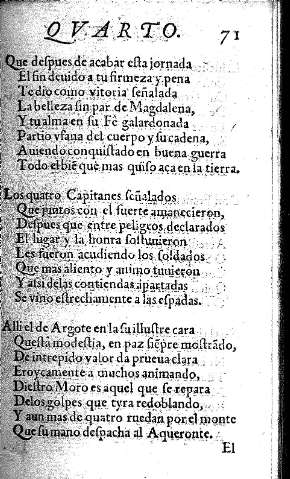 QVARTO. 71
Que despues de acabar esta jornada
El fin deuido a tu firmeza y pena
Te dio como vitoria señalada
La belleza sin par de Magdalena,
Y tu alma en su Fê galardonada
Partio vfana del cuerpo y su cadena,
Auiendo conquistado en buena guerra
Todo el biẽ que mas quiso aca en la tierra.
Los quatro Capitanes señalados
Que juntos con el fuerte amanecieron,
Despues que entre peligros declarados
El lugar y la honra sostuuieron
Les fueron acudiendo los soldados
Que mas aliento y animo tuuieron
Y assi de las contiendas apartadas
Se vino estrechamente a las espadas.
Alli el de Argote en la su illustre cara
Questa modestia, en paz siẽpre mostrãdo,
De intrepido valor da prueua clara
Eroycamente a muchos animando,
Diestro Moro es aquel que se repara
Delos golpes que tyra redoblando,
Y aun mas de quatro ruedan por el monte
Que su mano despacha al Aqueronte.
El